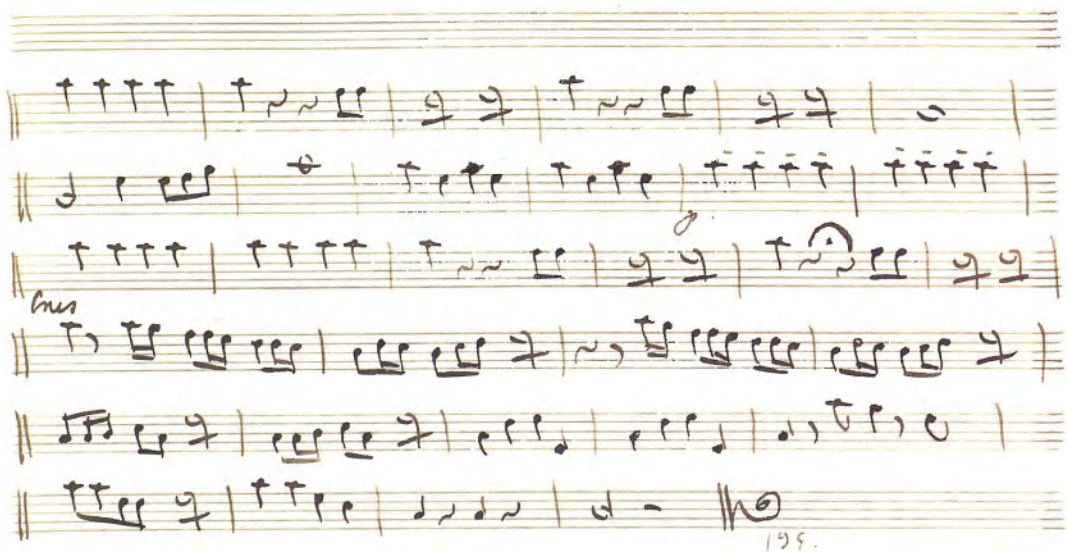 Cres
195.